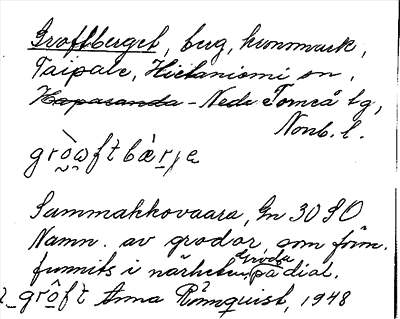 Groftberget, berg, kronomark,
Taipale, Hietaniemi sn,
Haparanda - Neder Torneå tg,
Norrb. l.
gròwftbæ̀rje
Sammakkovaara, Gn 30 SO
Namn. av grodor, som förm.
funnits i närheten. Groda på dial.
grôft Anna Rönnquist, 1948